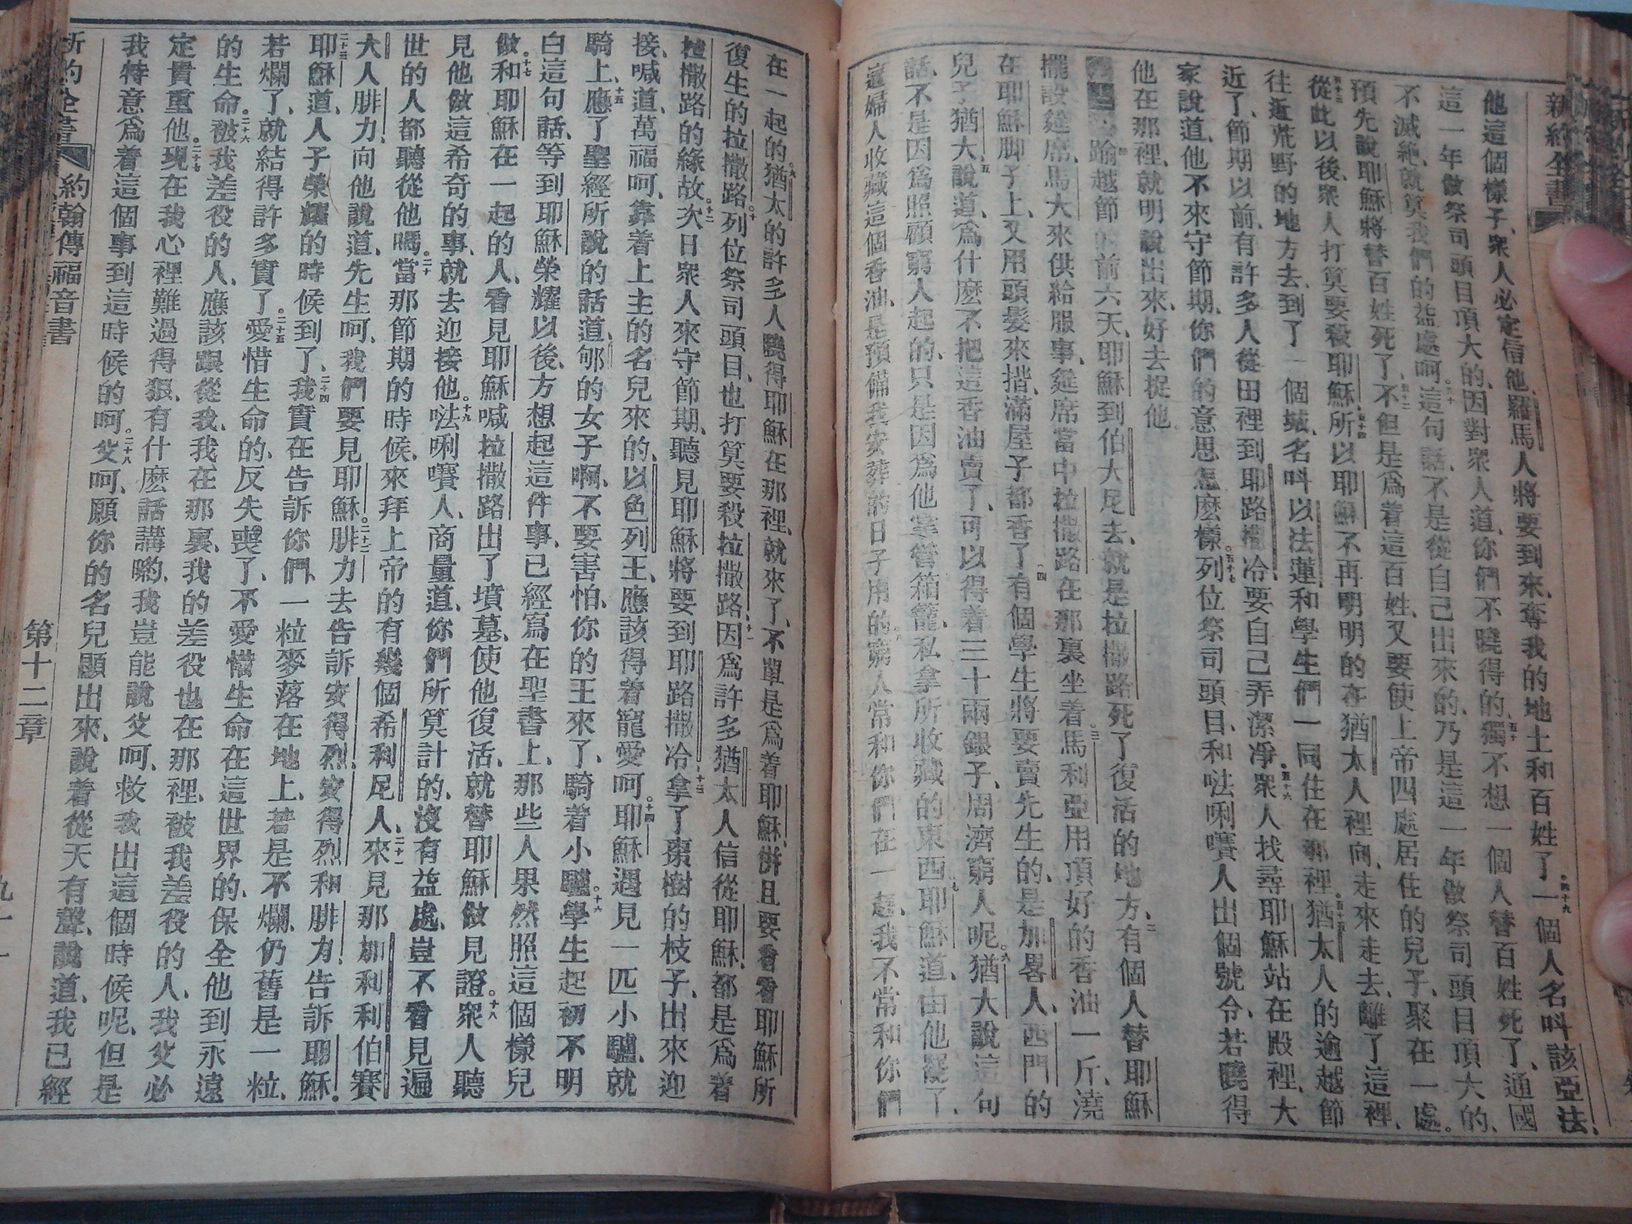 新約全書
他這個樣子、衆人必定信他、羅馬人將要到來、奪我的地土和百姓了、四十九一個人名呌該亞法、
這一年做祭司頭目頂大的、因對衆人道、你們不曉得的、五十獨不想一個人替百姓死了、通國
不滅絶、就筭我們的益處呵、五十一這句話、不是從自己出來的、乃是這一年做祭司頭目頂大的、
預先說耶穌將替百姓死了、五十二不但是爲着這百姓、又要使上帝四處居住的兒子、聚在一處。
五十三從此以後、衆人打筭要殺耶穌、五十四所以耶穌不再明明的在猶太人裡向、走來走去、離了這裡、
往近荒野的地方去、到了一個城、名呌以法蓮、和學生們一同住在那裡、五十五猶太人的逾越節
近了、節期以前、有許多人從田裡到耶路撒冷、要自己弄潔凈、五十六衆人找尋耶穌、站在殿裡、大
家說道、他不來守節期、你們的意思怎麼樣、五十七列位祭司頭目、和𠵽唎賽人出個號令、若曉得
他在那裡、就明說出來、好去捉他
逾越節的前六天、耶穌到伯大尼去、就是拉撒路死了復活的地方、二有個人替耶穌
擺設筵席、馬大來供給服事、筵席當中、拉撒路在那裏坐着、三馬利亞用頂好的香油一斤、澆
在耶穌脚子上、又用頭髮來揩、滿屋子都香了、四有個學生將要賣先生的、是加畧人、西門的
兒子猶大說道、五爲什麼不把這香油賣了、可以得着三十兩銀子、周濟窮人呢、六猶大說這句
話、不是因爲照顧窮人起的、只是因爲他掌管箱籠、私拿所收藏的東西、七耶穌道、由他罷了、
這婦人收藏這個香油、是預備我安葬的日子用的、八窮人常和你們在一起、我不常和你們
在一起的、九猶太的許多人曉得耶穌在那裡、就來了、不單是爲着耶穌、併且要看看耶穌所
復生的拉撒路、十列位祭司頭目、也打筭要殺拉撒路、十一因爲許多猶太人信從耶穌、都是爲着
拉撒路的緣故、十二次日衆人來守節期、聽見耶穌將要到耶路撒冷、十三拿了棗樹的枝子、出來迎
接、喊道、萬福呵、靠着上主的名兒來的、以色列王、應該得着寵愛呵、十四耶穌遇見一匹小驢、就
騎上、十五應了聖經所說的話道、郇的女子啊、不要害怕、你的王來了、騎着小驢、十六學生起初不明
白這句話、等到耶穌榮耀以後、方想起這件事、已經寫在聖書上、那些人果然照這個樣兒
做、十七和耶穌在一起的人、看見耶穌喊拉撒路出了墳墓、使他復活、就替耶穌做見證、十八衆人聽
見他做這希奇的事、就去迎接他、十九𠵽唎賽人、商量道、你們所筭計的、沒有益處、豈不看見遍
世的人、都聽從他嗎、二十當那節期的時候、來拜上帝的、有幾個希利尼人、二十一來見那加利利伯賽
大人腓力、向他說道、先生呵、我們要見耶穌、二十二腓力去告訴安得烈、安得烈和腓力、告訴耶穌、
二十三耶穌道、人子榮耀的時候到了、二十四我實在告訴你們、一粒麥落在地上、若是不爛、仍舊是一粒、
若爛了、就結得許多實了、二十五愛惜生命的、反失喪了、不愛惜生命在這世界的、保全他到永遠
的生命、二十六被我差役的人、應該跟從我、我在那裏、我的差役也在那裡、被我差役的人、我父必
定貴重他、二十七現在我心裡難過得狠、有什麼話講喲、我豈能說父呵、救我出這個時候呢、但是
我特意爲着這個事到這時候的呵、二十八父呵、願你的名兒顯出來、說着從天有聲、說道、我已經
新約全書 約翰傳福音書 第十二章